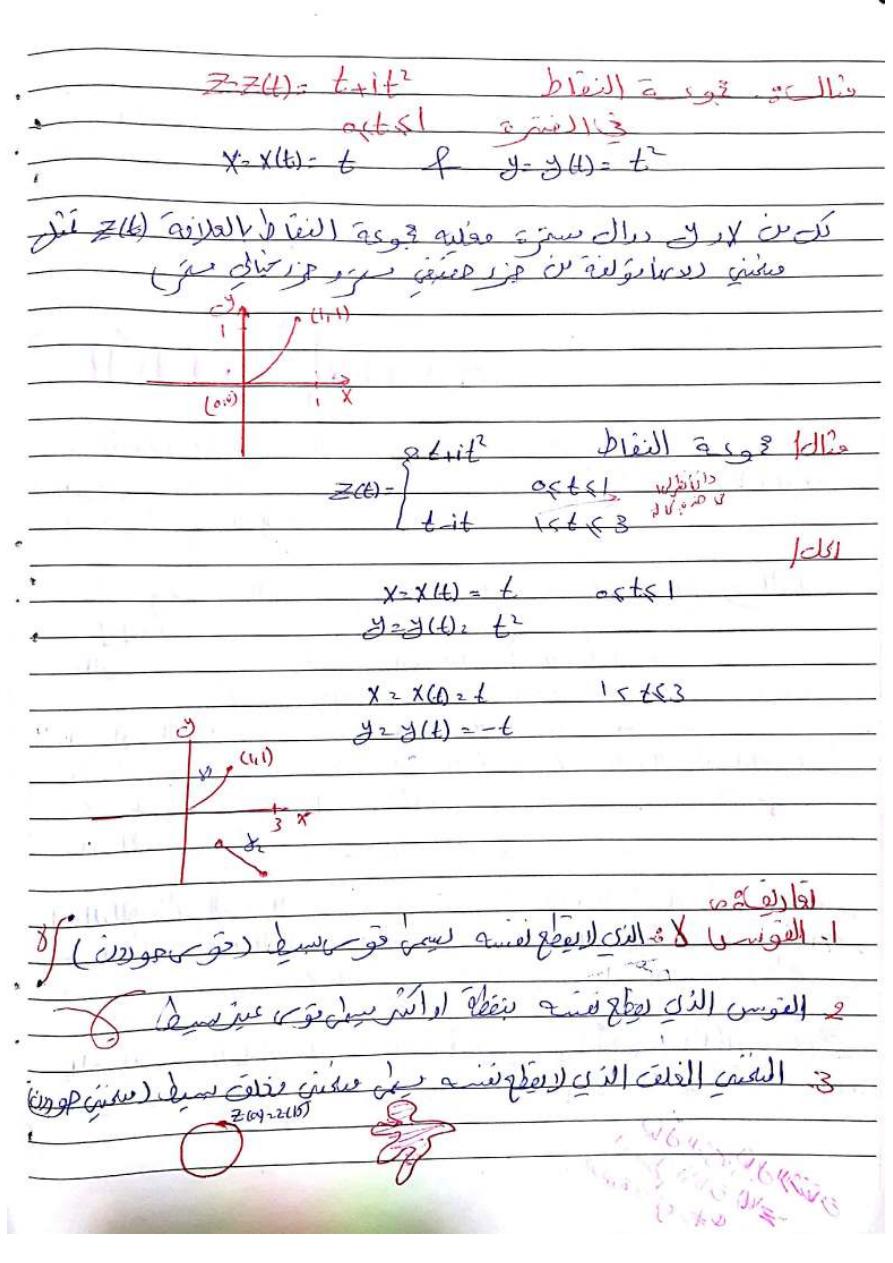 مثال:- مجموعة النقاط z=z(t)= t+it²
في الفترة 0≤t≤1
x=x(t)= t & y=y(t)= t²
كل من x و y دوال مستمرة وعليه مجموعة النقاط بالعلاقة z(t) تمثل
منحني (لانها مؤلفة من جزء حقيقي مستمر وجزء خيالي مستمر)
y
1
(1,1)
(0,0)
1
x
مثال/ مجموعة النقاط
z(t)= { t+it² 0≤t≤1
t-it 1<t≤3
الحل/
x=x(t) = t 0≤t≤1
y=y(t)= t²
x=x(t)=t 1<t≤3
y=y(t)=-t
y
(1,1)
3
x
γ₂
تعاريف:-
1. القوس γ الذي لا يقطع نفسه يسمى قوس بسيط (قوس جوردن) γ
2. القوس الذي يقطع نفسه بنقطة او اكثر يسمى قوس غير بسيط
3. المنحني المغلق الذي لا يقطع نفسه يسمى منحني مغلق بسيط (منحني جوردن)